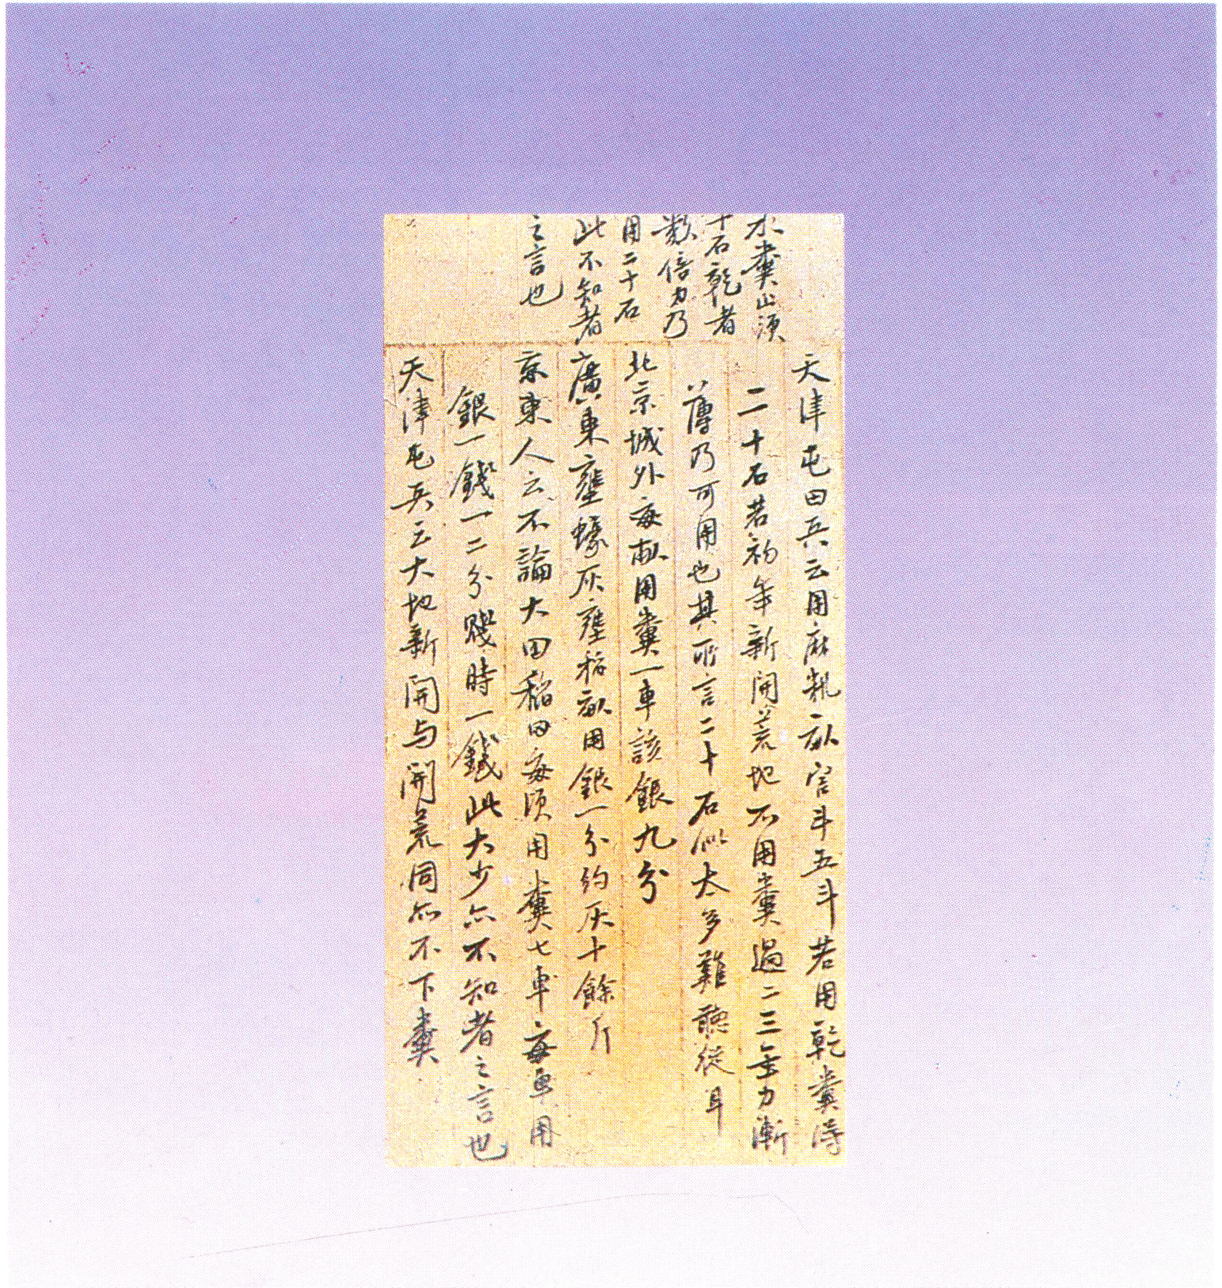 水糞止須
十石乾者
數倍力乃
用二十石
此不知者
之言也
天津屯田兵云用麻籸畝官斗五斗若用乾糞得
二十石若初年新開荒地不用糞過二三年力漸
薄乃可用也其所言二十石似太多難聽從耳
北京城外每畝用糞一車該銀九分
廣東壅蠔灰壅稻畝用銀一分約灰十餘斤
京東人云不論大田稻田每須用糞七車每車用
銀一錢一二分賤時一錢此大少亦不知者之言也
天津屯兵云大地新開与開荒同亦不下糞